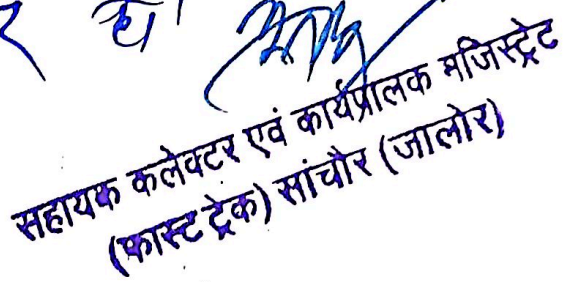 सहायक कलेक्टर एवं कार्यप्रालक मजिस्ट्रेट
(फास्ट ट्रेक) सांचौर (जालोर)